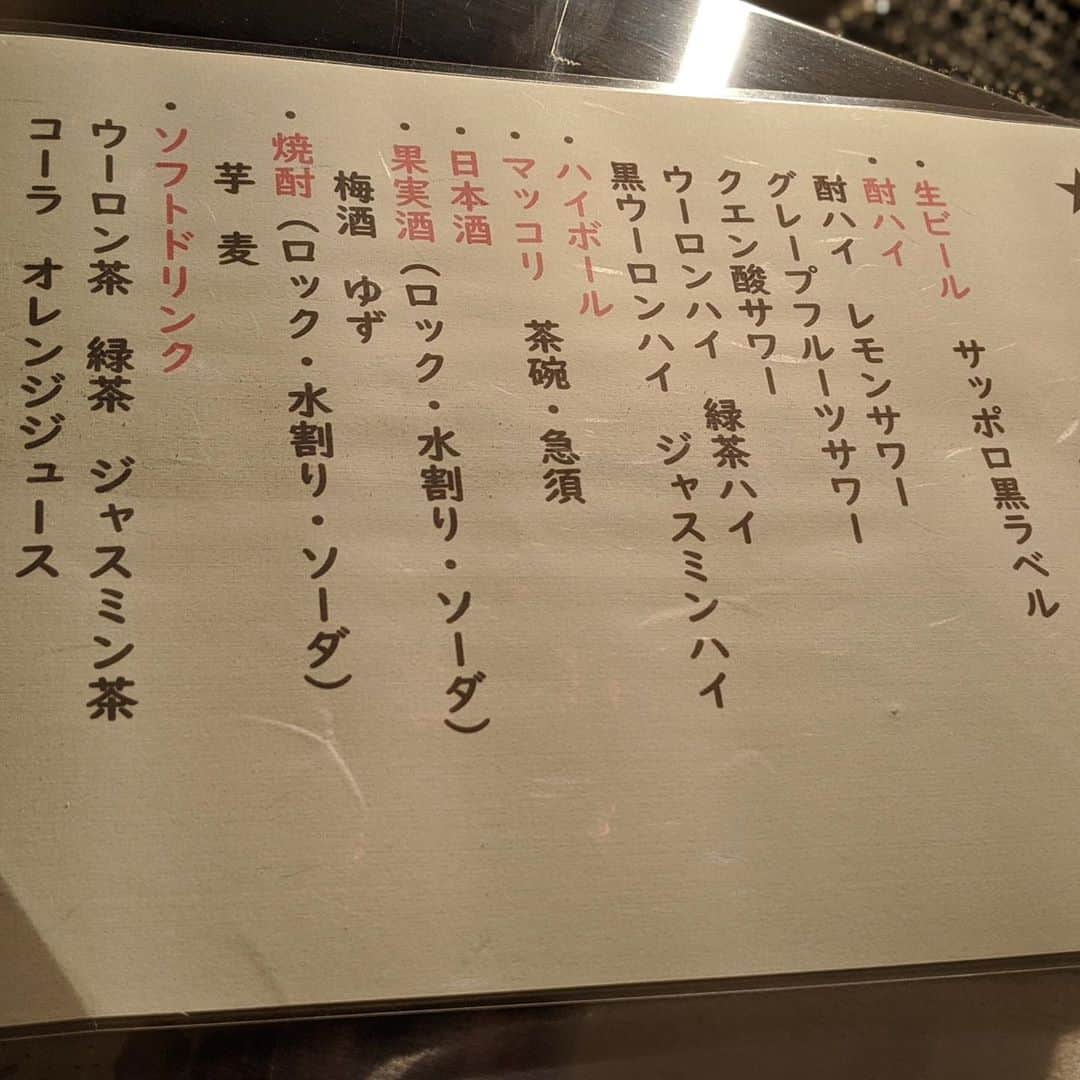 ★
・生ビール サッポロ黒ラベル
・酎ハイ
酎ハイ レモンサワー
グレープフルーツサワー
クエン酸サワー
ウーロンハイ 緑茶ハイ
黒ウーロンハイ ジャスミンハイ
・ハイボール
・マッコリ 茶碗・急須
・日本酒
・果実酒（ロック・水割り・ソーダ）
梅酒 ゆず
・焼酎（ロック・水割り・ソーダ）
芋 麦
・ソフトドリンク
ウーロン茶 緑茶 ジャスミン茶
コーラ オレンジジュース